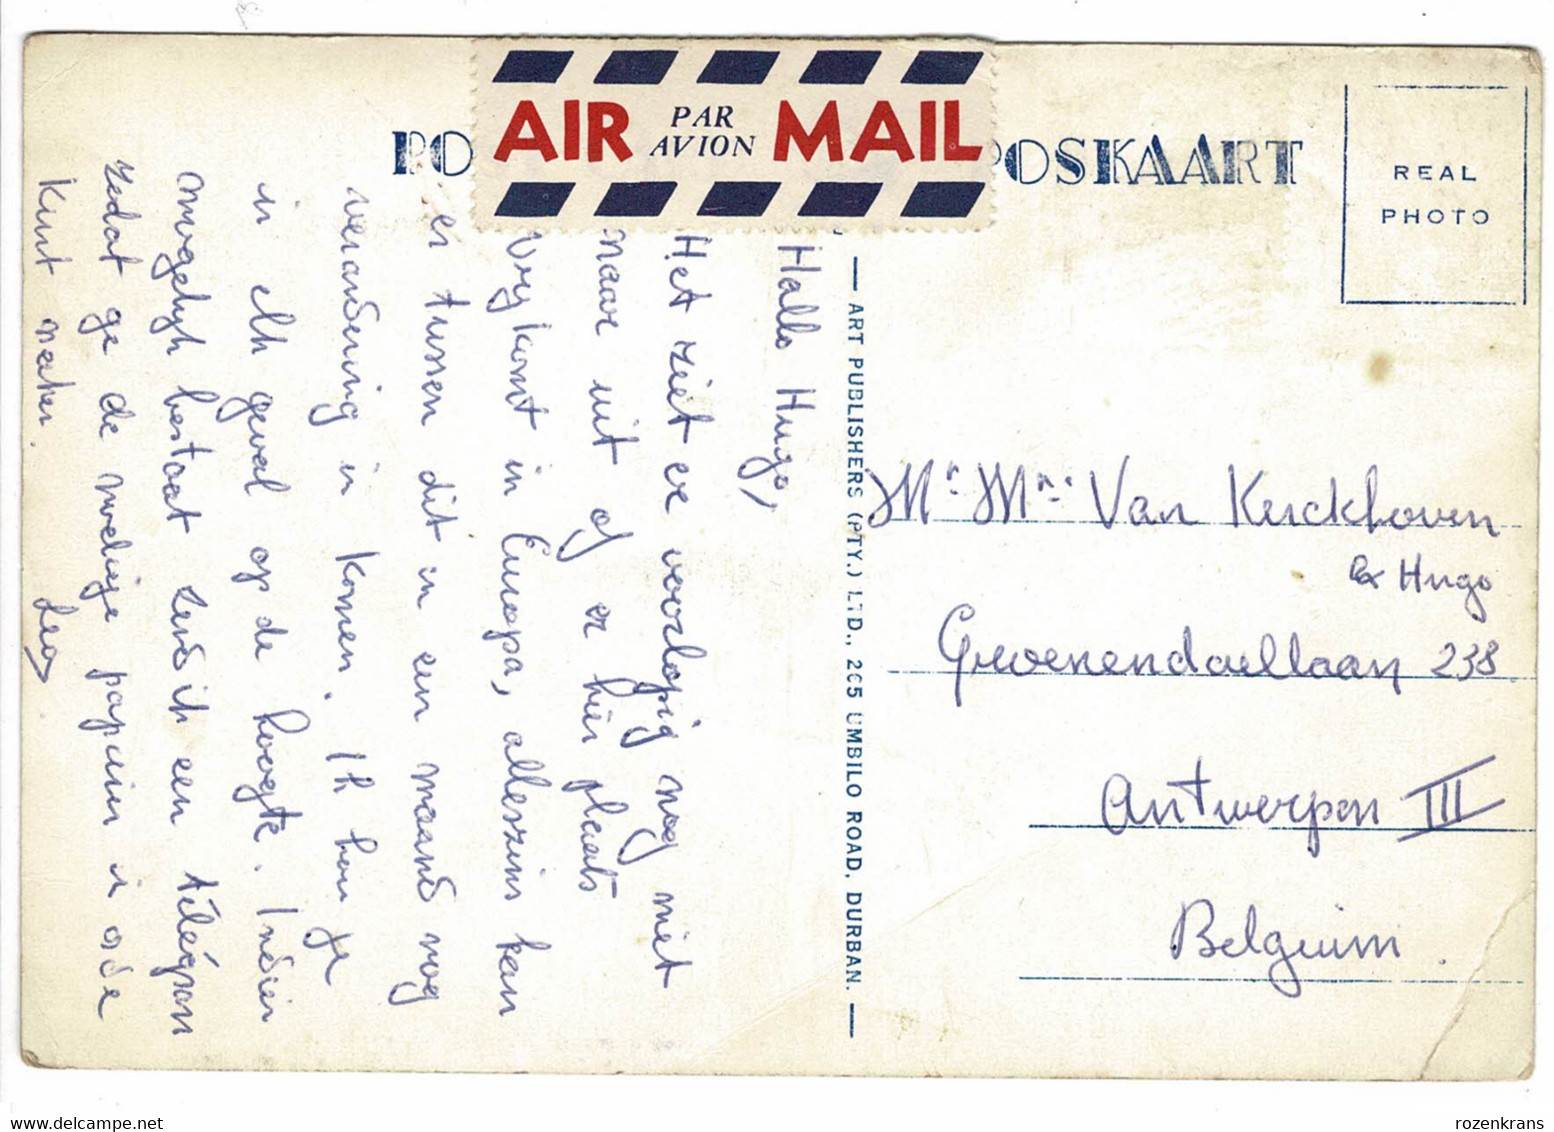 PO
POSKAART
AIR PAR AVION MAIL
REAL
PHOTO
Hallo Hugo,
Het ziet er voorlopig nog niet
naar uit of er hier plaats
vrij komt in Europa, alleszins kan
er tussen dit in een maand nog
verandering in komen. Ik hou je
in elk geval op de hoogte. Indien
mogelijk bestaat zend ik een télégram
zodat ge de nodige papieren in orde
kunt maken.
— ART PUBLISHERS (PTY.) LTD., 265 UMBILO ROAD, DURBAN. —
Mr Mn. Van Kerckhoven
Hugo
Groenendaellaan 238
Antwerpen III
Belguim.
rozenkrans